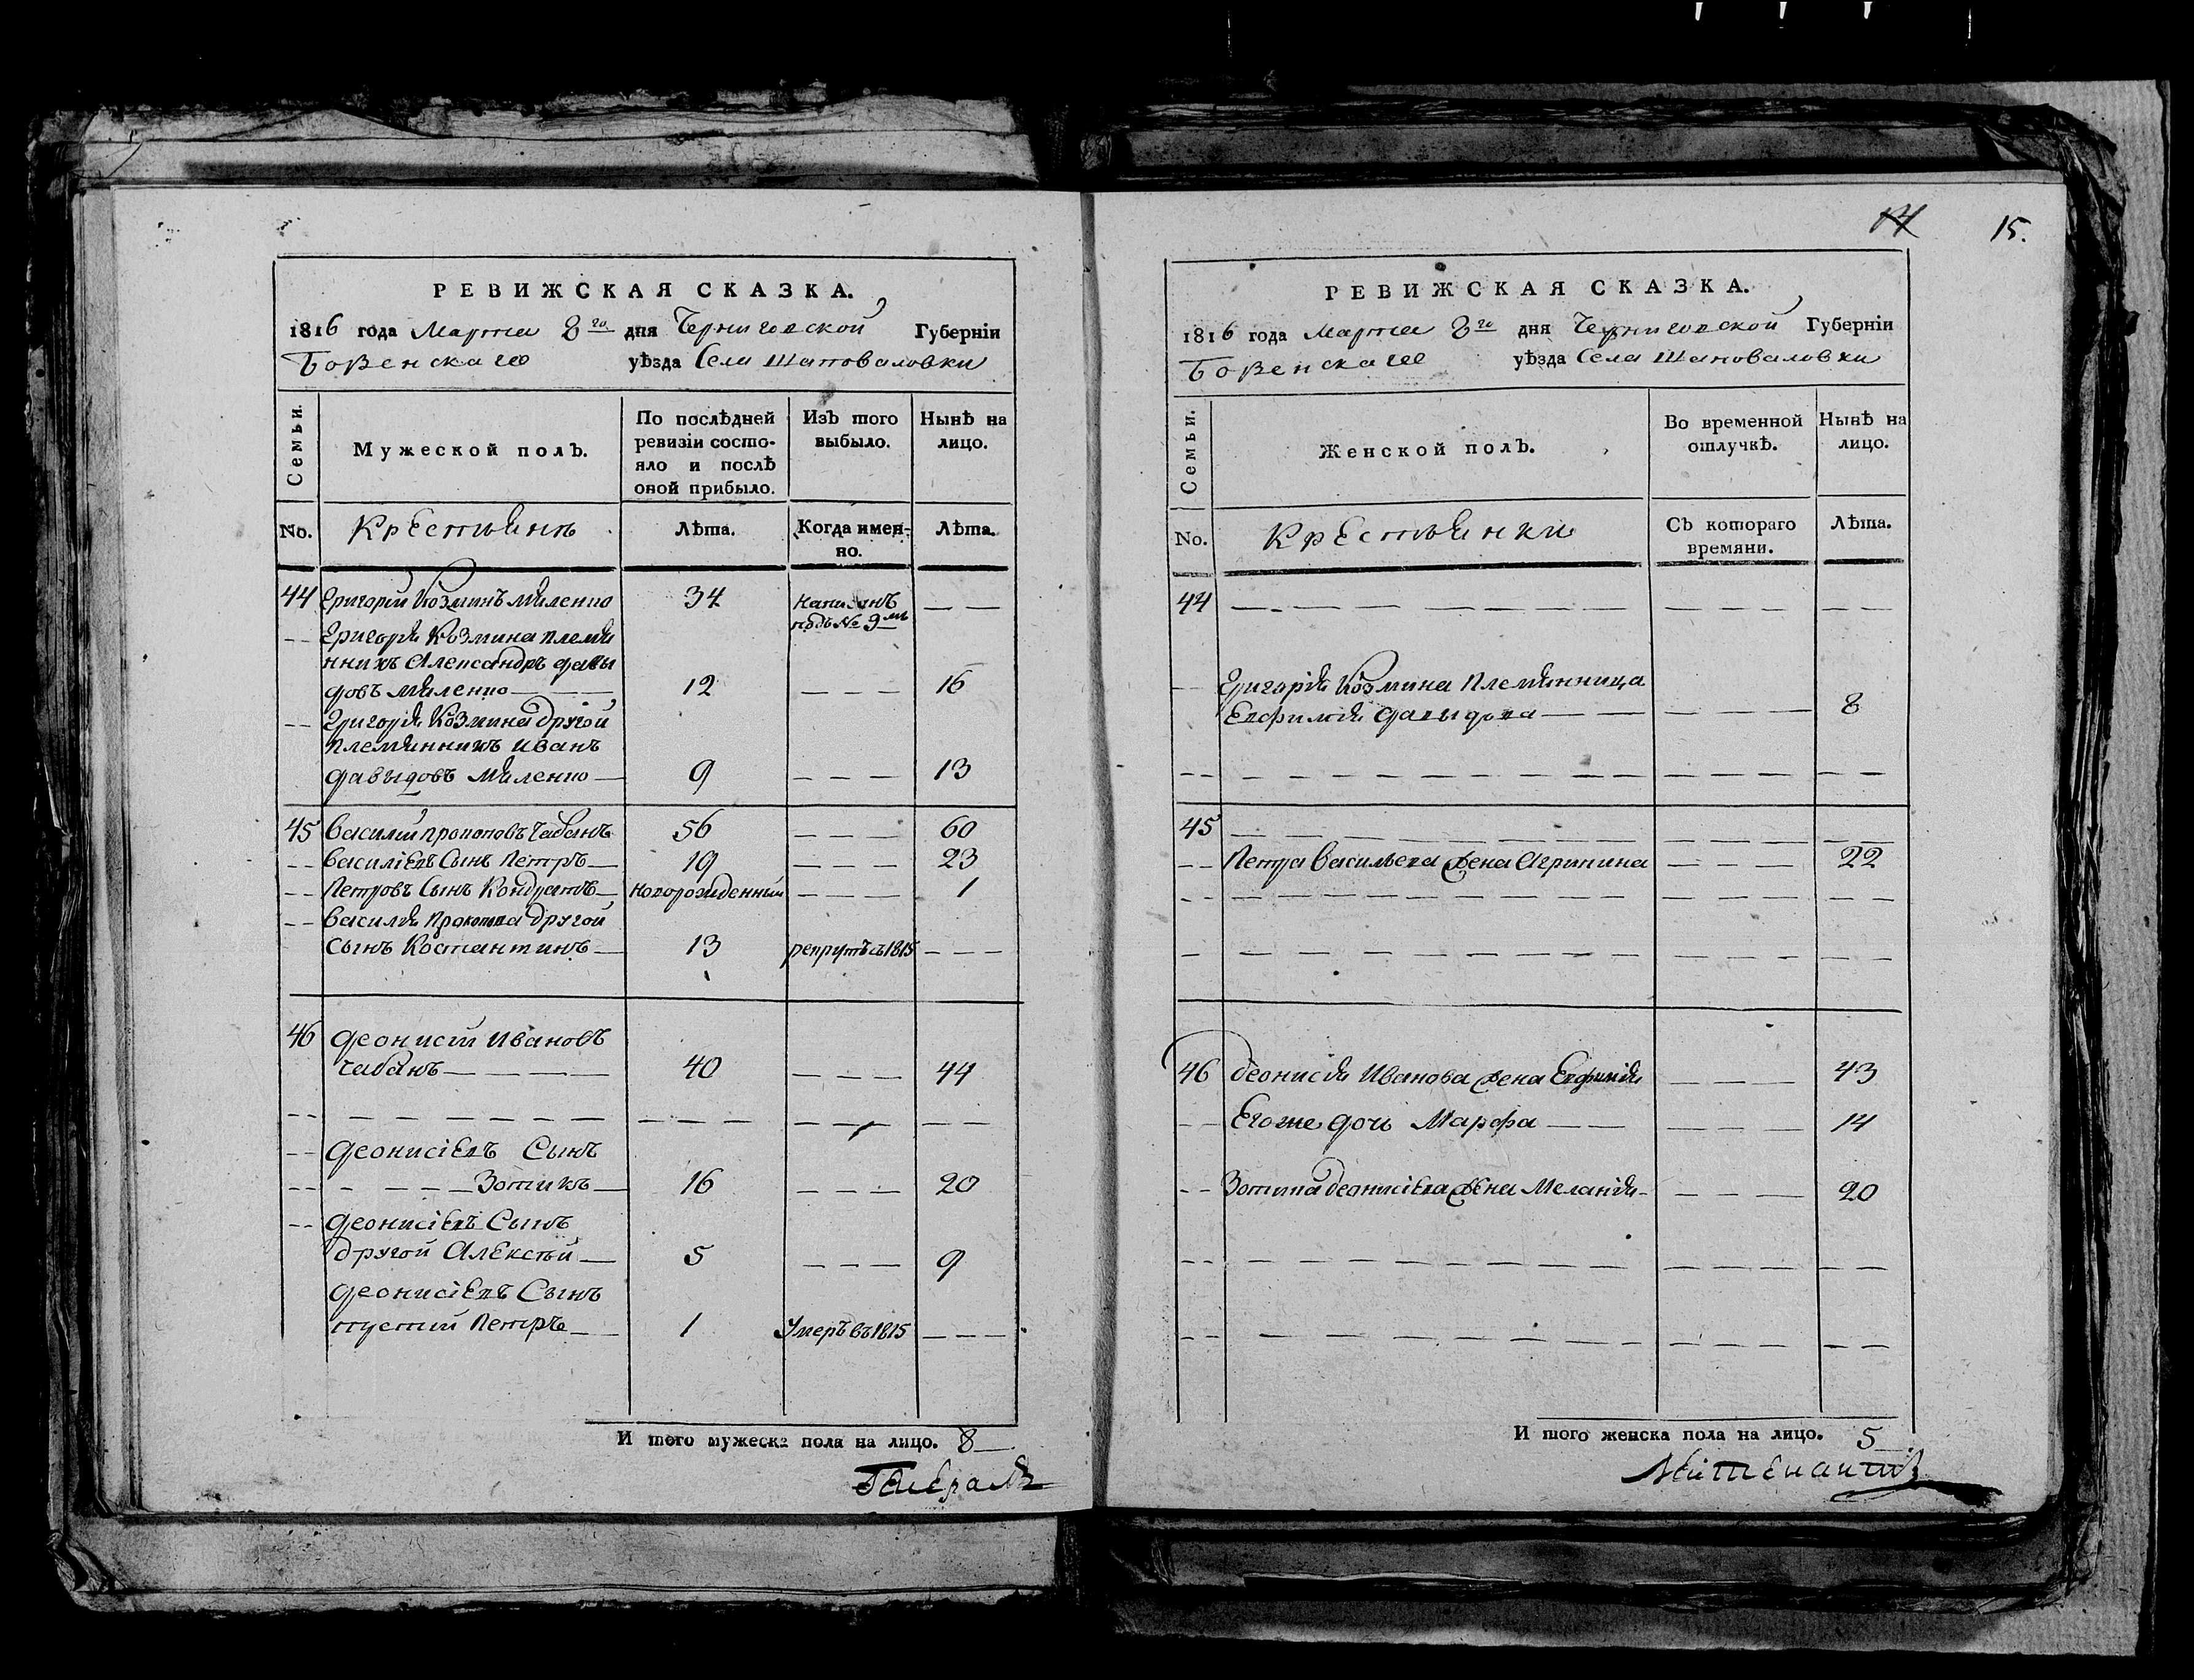 РЕВИЖСКАЯ СКАЗКА.
1816 года Марта 8го дня Черниговской Губерніи
Борзенскаго уѣзда Села Шаповаловки
Семьи.
Мужеской полъ.
По послѣдней ревизіи состояло и послѣ оной прибыло.
Изъ того выбыло.
Нынѣ на лицо.
No. Крестьянъ Лѣта. Когда именно. Лѣта.
44 Григорій Козминъ Миленко 34 написанъ подъ № 9мъ — —
— — Григорія Козмина племя
нникъ Александръ Давы
довъ Миленко — 12 — — — 16
— — Григорія Козмина другой
племянникъ Иванъ
Давыдовъ Миленко — 9 — — — 13
45 Василій Прокоповъ Чабанъ 56 — — — 60
— — Василіевъ Сынъ Петръ — 19 — — — 23
— — Петровъ Сынъ Кондратъ — новорожденный — — — 1
— — Василія Прокопова другой
сынъ Костантинъ — 13 рекрутъ съ 1815 — — —
46 Деонисій Ивановъ
Чабанъ — — — — 40 — — — 44
— — Деонисіевъ Сынъ
— — — — — — Зотикъ — 16 — — — 20
— — Деонисіевъ Сынъ
другой Алексѣй — 5 — — — 9
Деонисіевъ Сынъ
третий Петръ — — 1 Умеръ въ 1815 — — —
И того мужеска пола на лицо. 8
Генералъ
14 15.
РЕВИЖСКАЯ СКАЗКА.
1816 года Марта 8го дня Черниговской Губерніи
Борзенскаго уѣзда Села Шаповаловки
Семьи.
Женской полъ.
Во временной отлучкѣ.
Нынѣ на лицо.
No. Крестьянки Съ котораго времяни. Лѣта.
44 — — — — — — — — — — — —
— Григорія Козмина Племянница
Евфимія Давыдова — — — — — 8
45 — — — — — — — — — — — —
— — Петра Васильева жена Агрипина — — — 22
46 Деонисія Иванова жена Евфимія — — — 43
— — Егоже дочь Марфа — — — — — 14
— — Зотика Деонисіева жена Меланія — — — — 20
И того женска пола на лицо. 5
Лейтенантъ